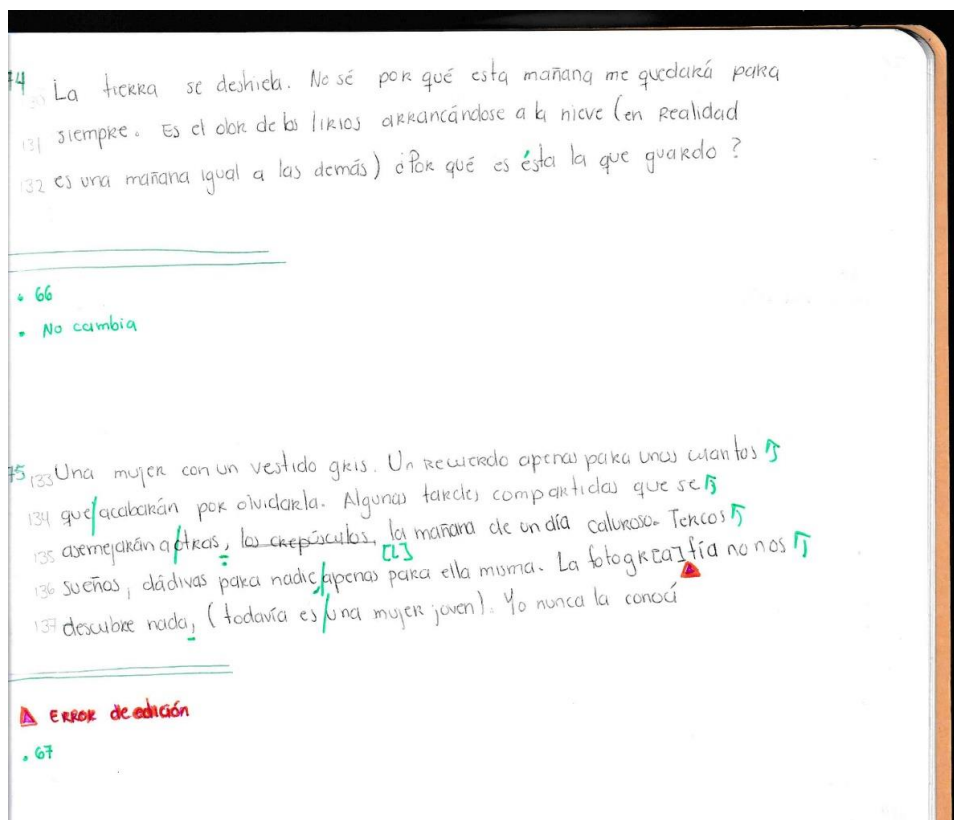 74
130 La tierra se deshiela. No sé por qué esta mañana me quedará para
131 siempre. Es el olor de los lirios arrancándose a la nieve (en realidad
132 es una mañana igual a las demás) ¿Por qué es ésta la que guardo?
• 66
• No cambia
75
133 Una mujer con un vestido gris. Un recuerdo apenas para unos cuantos
134 que/acabarán por olvidarla. Algunas tardes compartidas que se
135 asemejarán a/otras, los crepúsculos, la mañana de un día caluroso. Tercos
[L]
136 sueños, dádivas para nadie,/apenas para ella misma. La fotogr[a]fía no nos
137 descubre nada, (todavía es/una mujer joven). Yo nunca la conocí
Error de edición
• 67